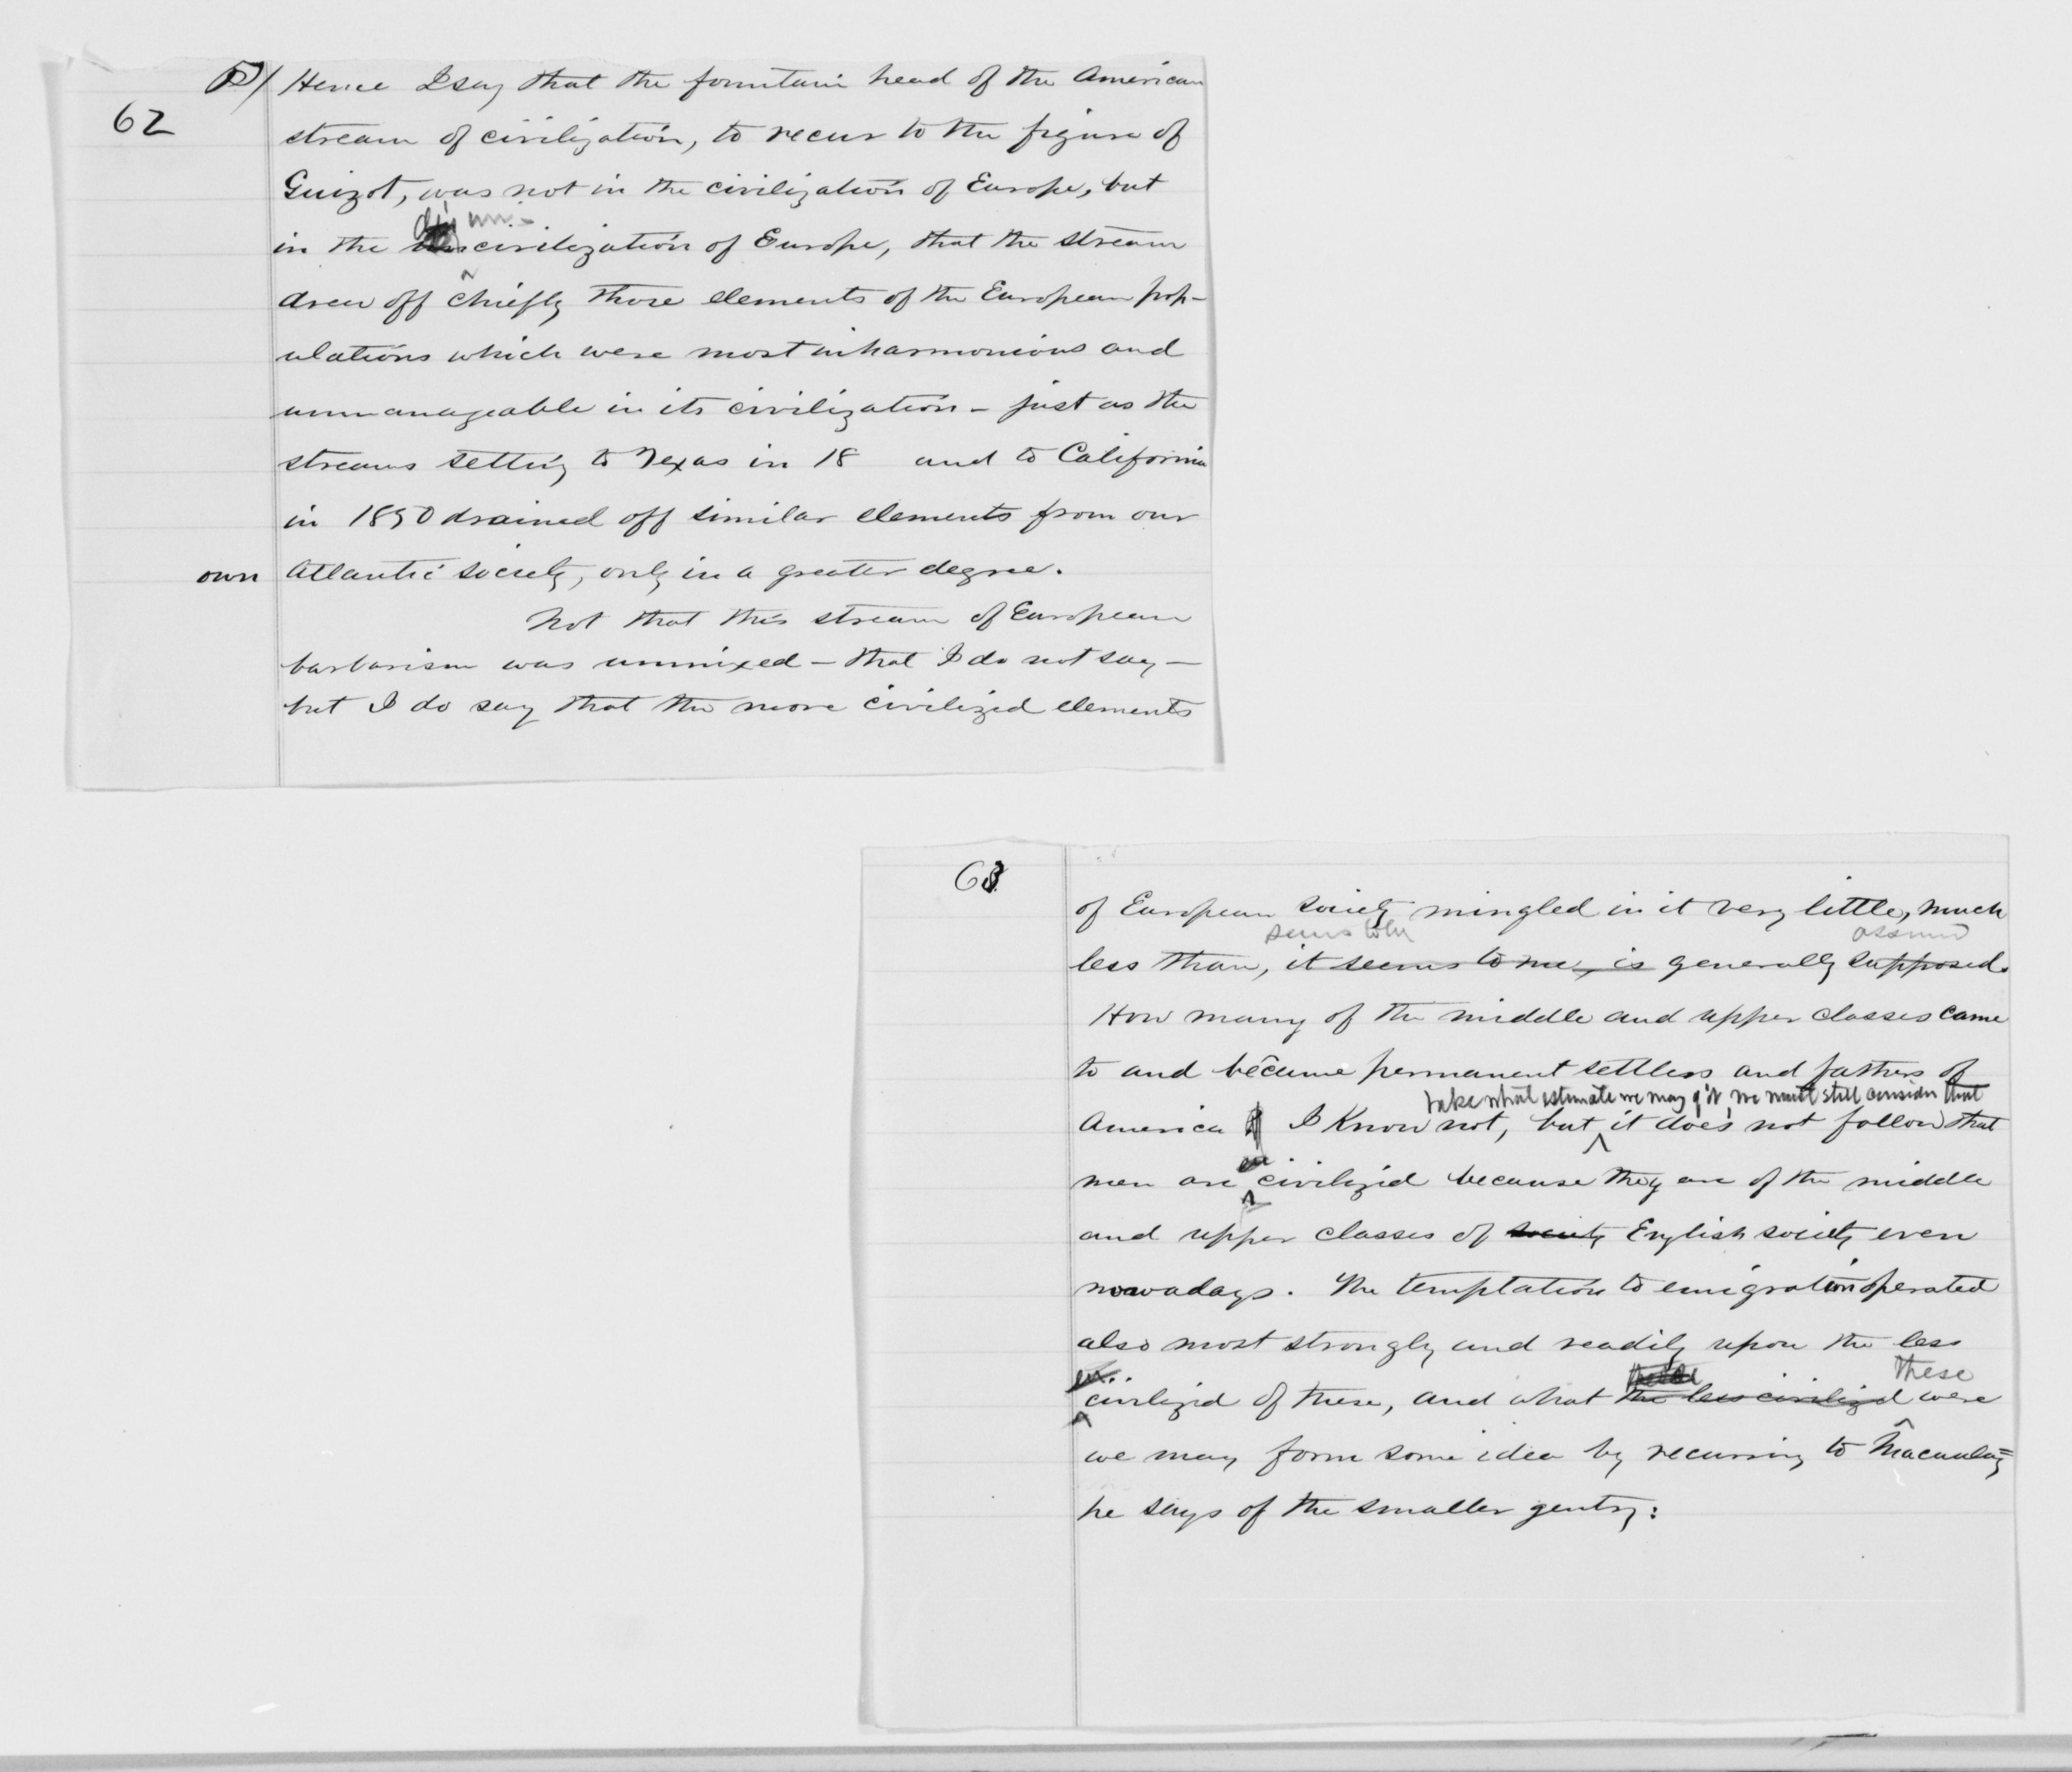 62
Hence I say that the fountain head of the American
stream of civilization, to recur to the figure of
Guizot, was not in the civilization of Europe, but
in the civilization of Europe, that the stream
drew off chiefly those elements of the European pop-
ulations which were most inharmonious and
unmanageable in its civilization - just as the
streams setting to Texas in 18 and to California
in 1850 drained off similar elements from our
own Atlantic society, only in a greater degree.
Not that this stream of European
barbarism was unmixed - that I do not say -
but I do say that the more civilized elements
63
of European society mingled in it very little, much
seems to be assumed
less than, it seems to me, is generally supposed.
How many of the middle and upper classes came
to and became permanent settlers and fathers of
take what estimate we may of it, we must still consider that
America I know not, but it does not follow that
men are civilized because they are of the middle
and upper classes of society English society even
nowadays. The temptation to emigration operated
also most strongly and readily upon the less
these
civilized of these, and what the less civilized were
we may form some idea by recurring to Macaulay=
he says of the smaller gentry: